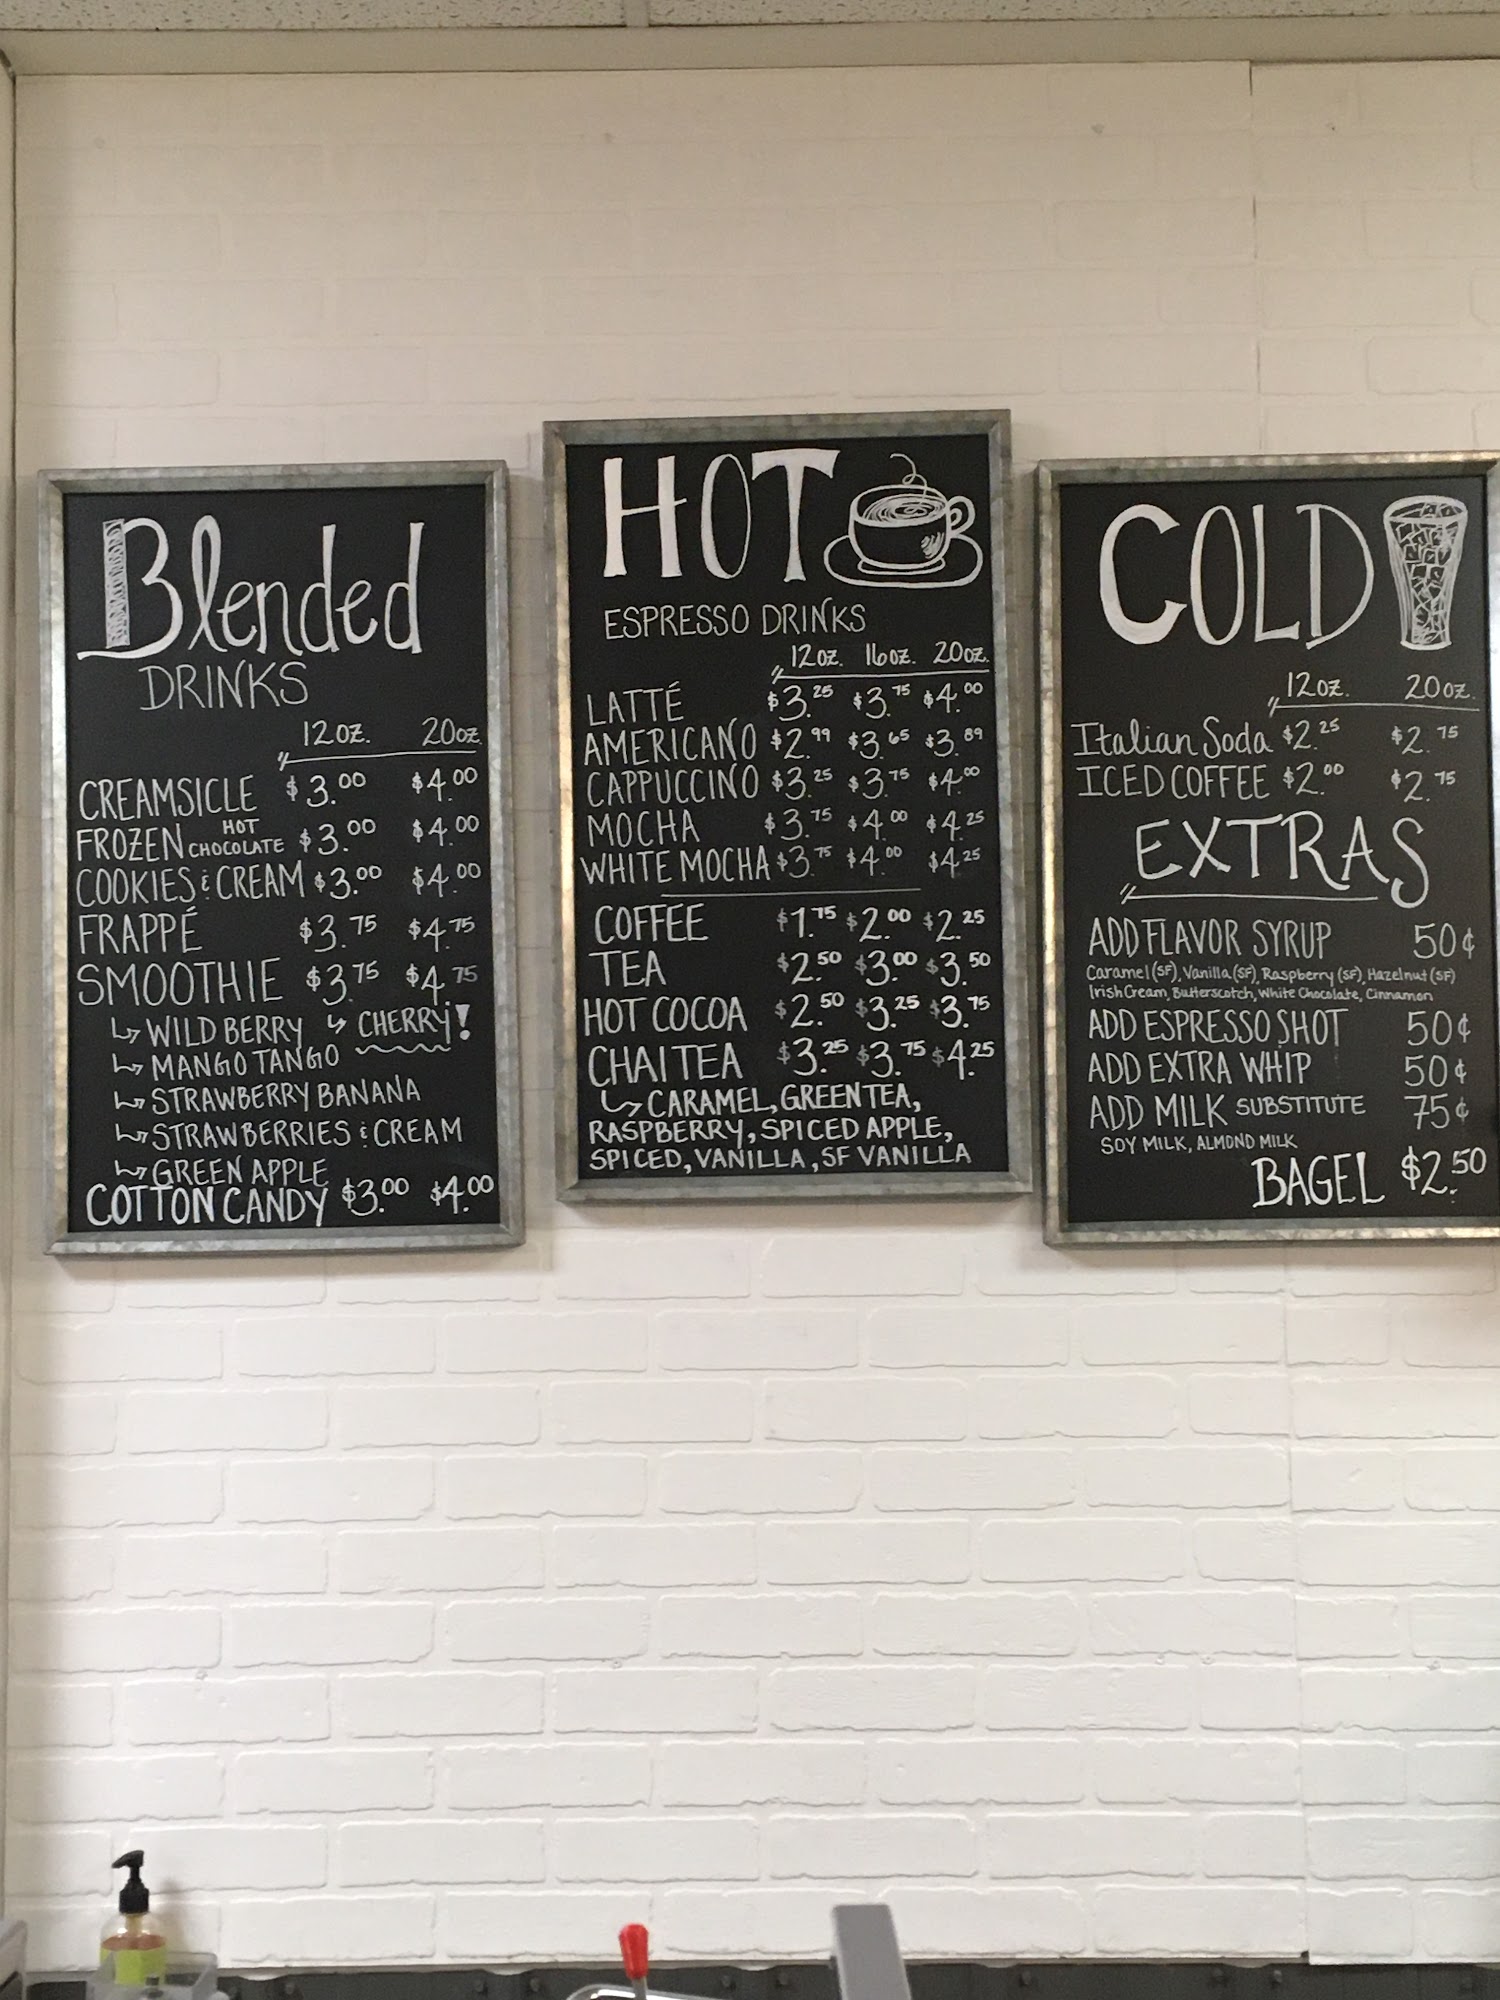 Blended
DRINKS
12OZ. 20OZ.
CREAMSICLE $3.00 $4.00
FROZEN HOT CHOCOLATE $3.00 $4.00
COOKIES & CREAM $3.00 $4.00
FRAPPÉ $3.75 $4.75
SMOOTHIE $3.75 $4.75
↳ WILD BERRY ↳ CHERRY!
↳ MANGO TANGO
↳ STRAWBERRY BANANA
↳ STRAWBERRIES & CREAM
↳ GREEN APPLE
COTTON CANDY $3.00 $4.00
HOT
ESPRESSO DRINKS
12OZ. 16OZ. 20OZ.
LATTÉ $3.25 $3.75 $4.00
AMERICANO $2.99 $3.65 $3.89
CAPPUCCINO $3.25 $3.75 $4.00
MOCHA $3.75 $4.00 $4.25
WHITE MOCHA $3.75 $4.00 $4.25
COFFEE $1.75 $2.00 $2.25
TEA $2.50 $3.00 $3.50
HOT COCOA $2.50 $3.25 $3.75
CHAI TEA $3.25 $3.75 $4.25
↳ CARAMEL, GREEN TEA,
RASPBERRY, SPICED APPLE,
SPICED, VANILLA, SF VANILLA
COLD
12OZ. 20OZ.
Italian Soda $2.25 $2.75
ICED COFFEE $2.00 $2.75
EXTRAS
ADD FLAVOR SYRUP 50¢
Caramel (SF), Vanilla (SF), Raspberry (SF), Hazelnut (SF)
Irish Cream, Butterscotch, White Chocolate, Cinnamon
ADD ESPRESSO SHOT 50¢
ADD EXTRA WHIP 50¢
ADD MILK SUBSTITUTE 75¢
SOY MILK, ALMOND MILK
BAGEL $2.50